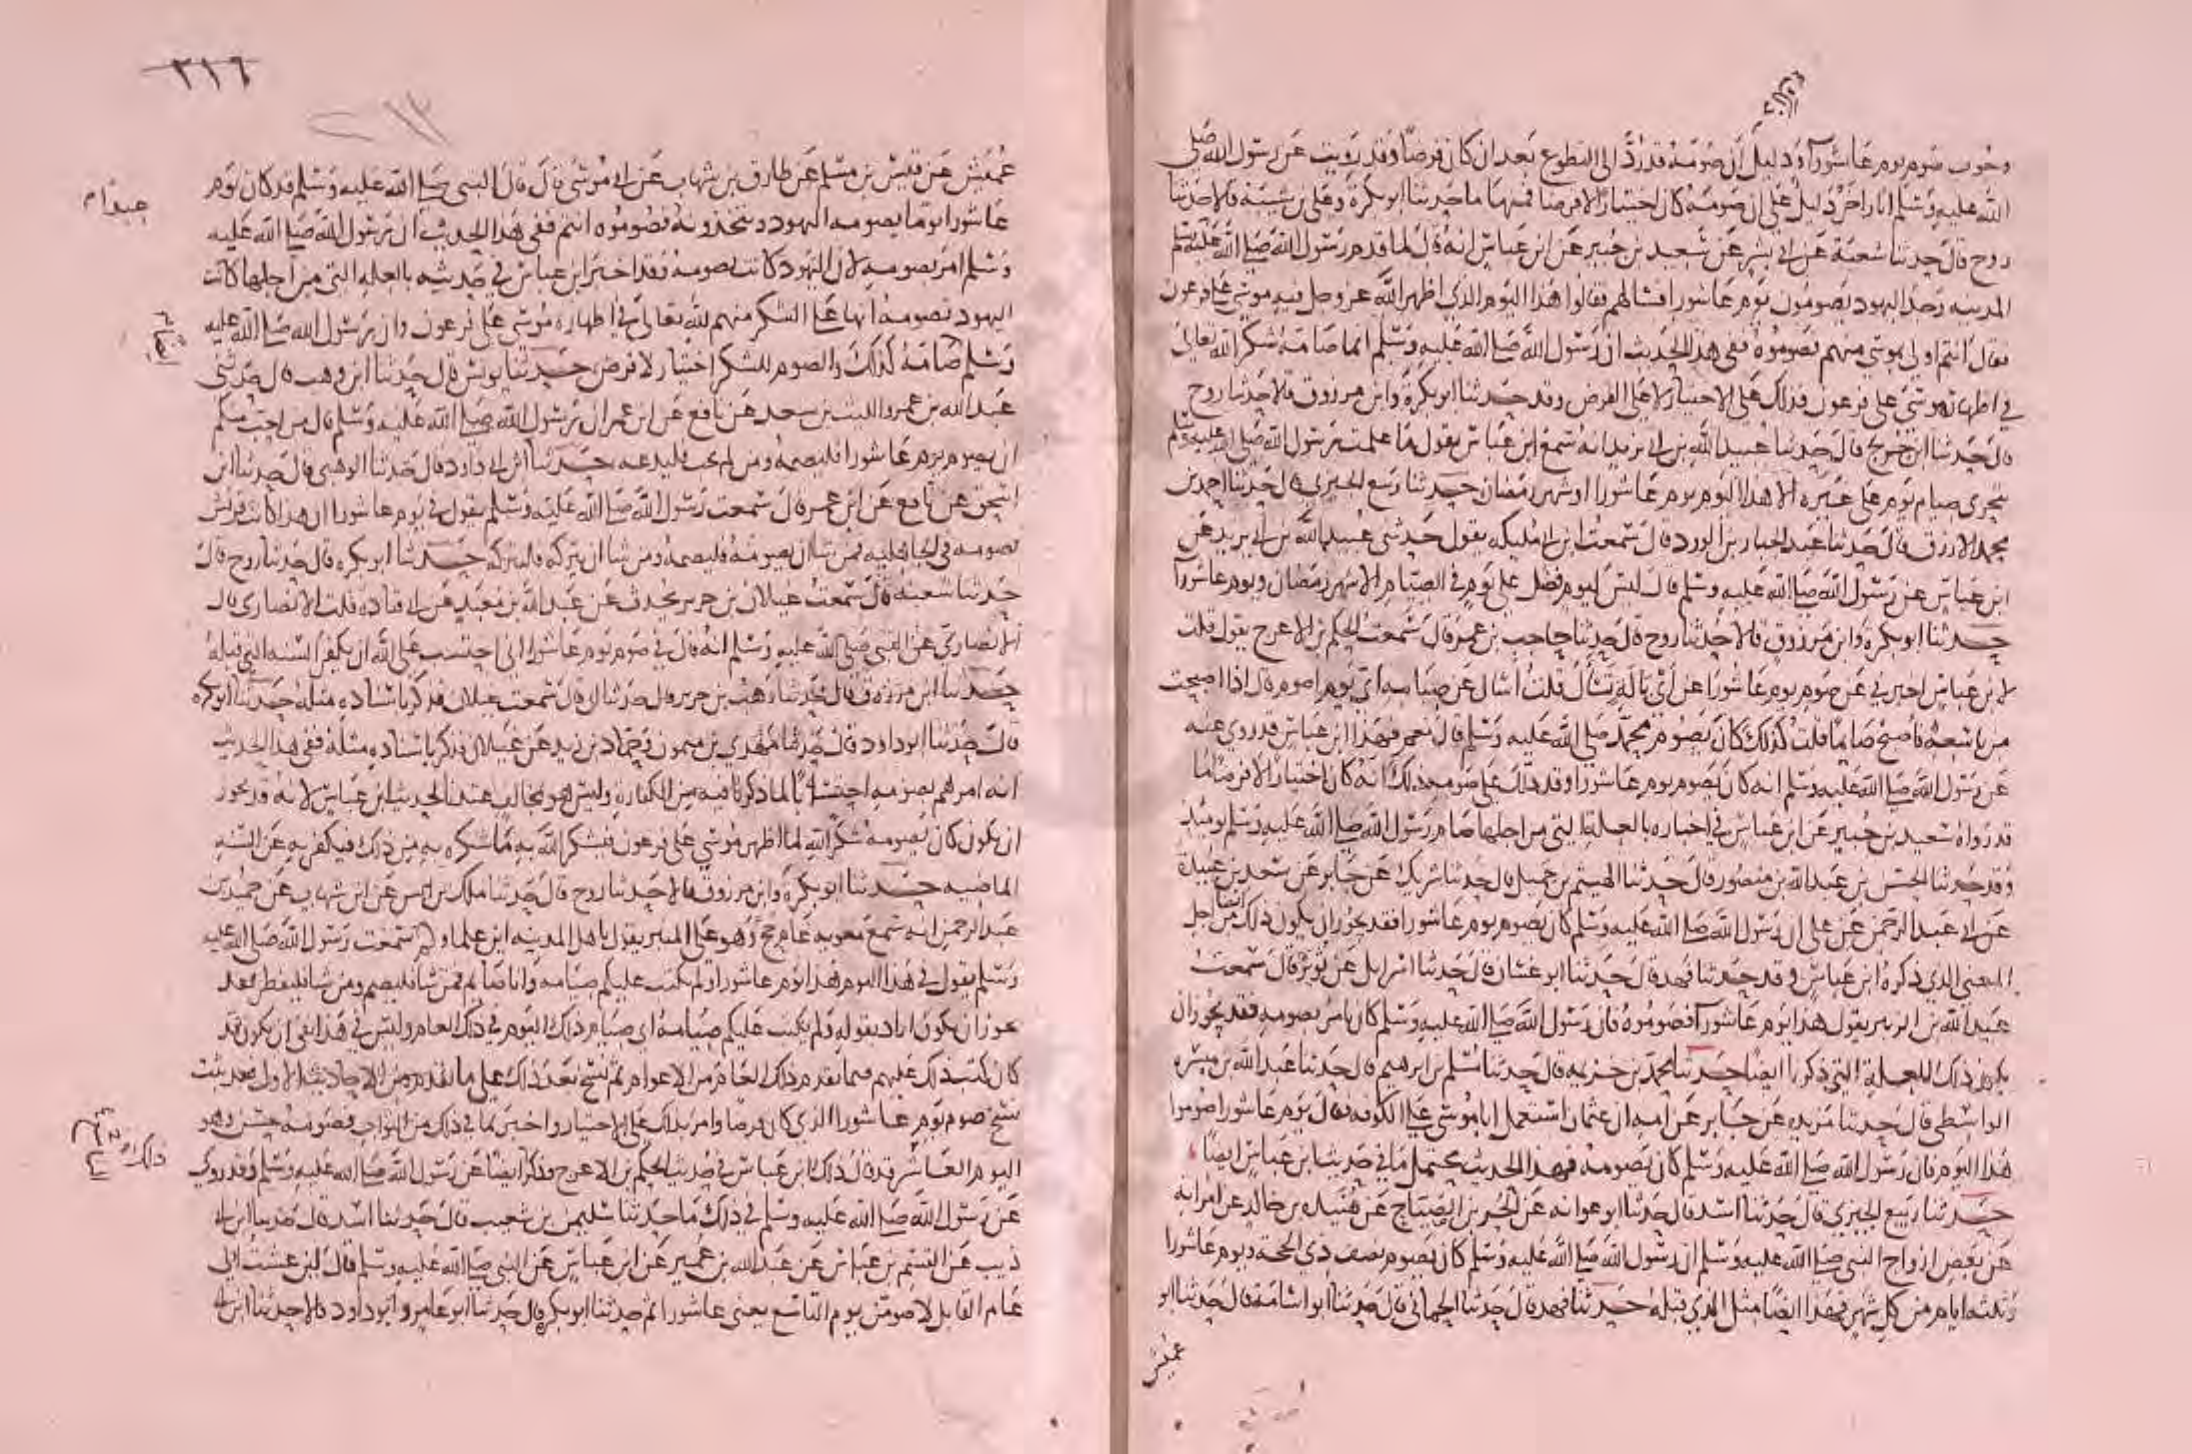 وجوب صوم يوم عاشوراء ودليل ان صومه قد رد الى التطوع بعد ان كان فرضا وقد رويت عن رسول الله صلى
الله عليه وسلم اثار اخر دليل على ان صومه كان اختيارا لا فرضا فمنها ما حدثنا ابو بكرة وعلى بن شيبة قالا حدثنا
روح قال حدثنا شعبة عن ابى بشر عن سعيد بن جبير عن ابن عباس انه قال لما قدم رسول الله صلى الله عليه وسلم
المدينه وجد اليهود يصومون يوم عاشورا فسالهم فقالوا هذا اليوم الذى اظهر الله عز وجل فيه موسى على فرعون
فقال انتم اولى بموسى منهم فصوموه ففى هذا الحديث ان رسول الله صلى الله عليه وسلم انما صامه شكرا لله تعالى
فى اظهاره موسى على فرعون فذلك على الاختيار لا على الفرض وقد حدثنا ابو بكرة وابن مرزوق قالا حدثنا روح
قال حدثنا ابن جريج قال حدثنا عبيد الله بن ابى يزيد انه سمع ابن عباس يقول ما علمت رسول الله صلى الله عليه وسلم
يتحرى صيام يوم على غيره الا هذا اليوم يوم عاشورا او شهر رمضان حدثنا ربيع الجيزى قال حدثنا احمد بن
محمد الازرق قال حدثنا عبد الجبار بن الورد قال سمعت ابن ابى مليكه يقول حدثنى عبيد الله بن ابى يزيد عن
ابن عباس عن رسول الله صلى الله عليه وسلم قال ليس ليوم فضل على يوم فى الصيام الا شهر رمضان ويوم عاشورا
حدثنا ابو بكره وابن مرزوق قالا حدثنا روح قال حدثنا حاجب بن عمر قال سمعت الحكم بن الاعرج يقول قلت
لابن عباس اخبرنى عن صوم يوم عاشورا عن اى باله تسأل قلت أسال عن صيامه اى يوم اصوم قال اذا اصبحت
من تاسعه فاصبح صائما قلت كذلك كان يصوم محمد صلى الله عليه وسلم قال نعم فهذا ابن عباس قد روى عنه
عن رسول الله صلى الله عليه وسلم انه كان يصوم يوم عاشورا وقد دلك على صومه ذلك انه كان اختيارا لا فرضا ما
قد رواه سعيد بن جبير عن ابن عباس فى اخباره بالعلة التى من اجلها صام رسول الله صلى الله عليه وسلم يومئذ
وقد حدثنا الحسن بن عبد الله بن منصور قال حدثنا الهيثم بن جميل قال حدثنا شريك عن جابر عن سعد بن عبيدة
عن ابى عبد الرحمن عن على ان رسول الله صلى الله عليه وسلم كان يصوم يوم عاشورا فقد يجوز ان يكون ذلك ايضا من اجل
المعنى الذى ذكره ابن عباس وقد حدثنا فهد قال حدثنا ابو غسان قال حدثنا اسرايل عن ثوير قال سمعت
عبد الله بن الزبير يقول هذا يوم عاشورا فصوموه فان رسول الله صلى الله عليه وسلم كان يامر بصومه فقد يجوز ان
يكون ذلك للعلة التى ذكرنا ايضا حدثنا محمد بن خزيمه قال حدثنا مسلم بن ابرهيم قال حدثنا عبد الله بن ميسره
الواسطى قال حدثنا مزيده عن جابر عن امه ان عثمان استعمل ابا موسى على الكوفه فقال يوم عاشورا صوموا
هذا اليوم فان رسول الله صلى الله عليه وسلم كان يصومه فهذا الحديث يحتمل ما فى حديث ابن عباس ايضا
حدثنا ربيع الجيزى قال حدثنا اسد قال حدثنا ابو عوانه عن الحر بن الصياح عن هنيده بن خالد عن امراته
عن بعض ازواج النبى صلى الله عليه وسلم ان رسول الله صلى الله عليه وسلم كان يصوم تسع ذى الحجة ويوم عاشورا
وثلثه ايام من كل شهر فهذا ايضا مثل الذى قبله حدثنا فهد قال حدثنا الحمانى قال حدثنا ابو اسامة قال حدثنا ابو
عميس
٢١٦
عميس عن قيس بن مسلم عن طارق بن شهاب عن ابى موسى قال قال النبى صلى الله عليه وسلم قد كان يوم
عاشورا يوما يصومه اليهود ويتخذونه فصوموه انتم ففى هذا الحديث ان رسول الله صلى الله عليه
وسلم امر بصومه لان اليهود كانت تصومه وقد اخبر ابن عباس فى حديثه بالعله التى من اجلها كانت
اليهود تصومه انها على الشكر منهم لله تعالى فى اظهاره موسى على فرعون وان رسول الله صلى الله عليه
وسلم صامه كذلك والصوم للشكر اختيار لا فرض حدثنا يونس قال حدثنا ابن وهب قال حدثنى
عبد الله بن عمر والليث بن سعد عن نافع عن ابن عمر ان رسول الله صلى الله عليه وسلم قال من احب منكم
ان يصوم يوم عاشورا فليصمه ومن لم يحب فليدعه حدثنا ابن ابى داود قال حدثنا الوهبى قال حدثنا ابن
اسحق عن نافع عن ابن عمر قال سمعت رسول الله صلى الله عليه وسلم يقول فى يوم عاشورا ان هذا كانت قريش
تصومه فى الجاهليه فمن شا ان يصومه فليصمه ومن شا ان يتركه فليتركه حدثنا ابو بكره قال حدثنا روح قال
حدثنا شعبة قال سمعت غيلان بن جرير يحدث عن عبد الله بن معبد عن ابى قتاده قلت الانصارى قال
الانصارى عن النبى صلى الله عليه وسلم انه قال فى صوم يوم عاشورا انى احتسب على الله ان يكفر السنه التى قبله
حدثنا ابن مرزوق قال حدثنا وهب بن جرير قال حدثنا ابى قال سمعت غيلان فذكر باسناده مثله حدثنا ابو بكره
قال حدثنا ابو داود قال حدثنا مهدى بن ميمون وحماد بن زيد عن غيلان فذكر باسناده مثله ففى هذا الحديث
انه امرهم بصومه احتسابا لما ذكرنا فيه من الكفاره وليس هو بمخالف عندنا لحديث ابن عباس لانه قد يجوز
ان يكون كان يصومه شكرا لله لما اظهر موسى على فرعون فيشكر الله به ما شكره به من ذلك فيكفر به عن السنه
الماضيه حدثنا ابو بكرة وابن مرزوق قالا حدثنا روح قال حدثنا ملك بن انس عن ابن شهاب عن حميد بن
عبد الرحمن انه سمع معويه عام حج وهو على المنبر يقول ياهل المدينه اين علماوكم سمعت رسول الله صلى الله عليه
وسلم يقول فى هذا اليوم هذا يوم عاشورا ولم يكتب عليكم صيامه وانا صايم فمن شا فليصم ومن شا فليفطر فقد
يجوز ان يكون اراد بقوله ولم يكتب عليكم صيامه اى صيام ذلك اليوم فى ذلك العام وليس فى هذا نفى ان يكون قد
كان كتب ذلك عليهم فيما تقدم ذلك العام من الاعوام ثم نسخ بعد ذلك على ما تقدم من الاحاديث الاول فقد ثبت
نسخ صوم يوم عاشورا الذى كان فرضا وامر بذلك على الاختيار واخبر بما فى ذلك من الثواب فصومه حسن وهو
اليوم العاشر قد قال ذلك ابن عباس فى حديث الحكم بن الاعرج وذكر ايضا عن رسول الله صلى الله عليه وسلم وقد روى
عن رسول الله صلى الله عليه وسلم فى ذلك ما حدثنا سليمن بن شعيب قال حدثنا اسد قال حدثنا ابن ابى
ذيب عن القسم بن عباس عن عبد الله بن عمير عن ابن عباس عن النبى صلى الله عليه وسلم قال لين عشت الى
عام القابل لاصومن يوم التاسع يعنى عاشورا ثم حدثنا ابو بكره قال حدثنا ابو عامر وابو داود قالا حدثنا ابن ابى
عيدا
ذلك